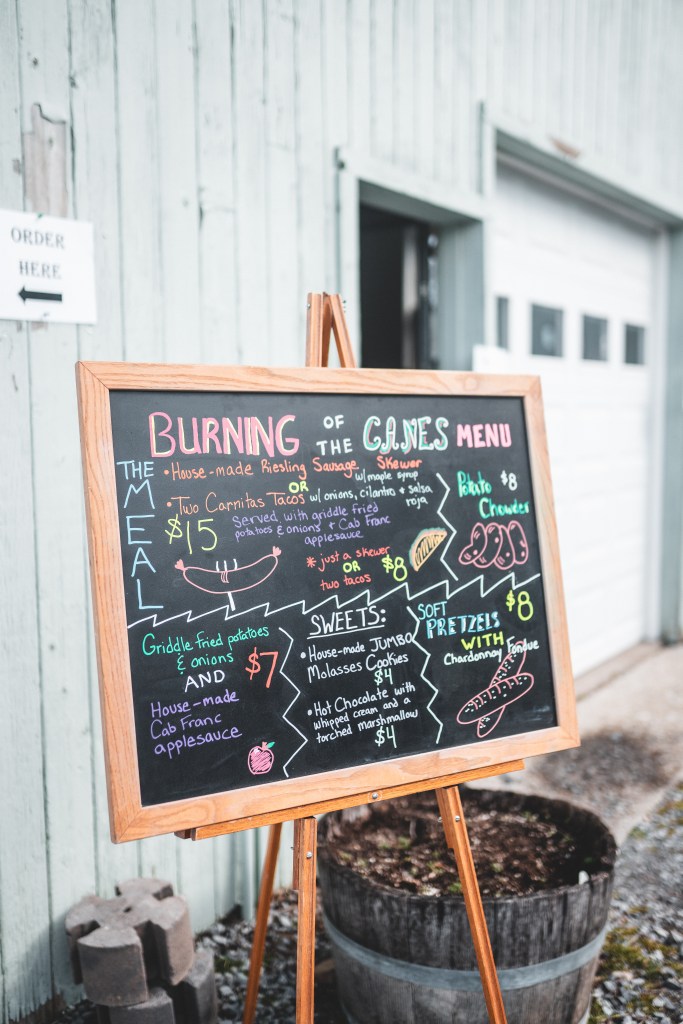 ORDER
HERE
BURNING OF THE CANES MENU
THE MEAL
• House-made Riesling Sausage Skewer
w/ maple syrup
OR
• Two Carnitas Tacos w/ onions, cilantro & salsa
roja
$15
Served with griddle fried
potatoes & onions & Cab Franc
applesauce
* just a skewer
OR
two tacos
$8
Potato $8
Chowder
Griddle fried potatoes
& onions
AND
$7
House-made
Cab Franc
applesauce
SWEETS:
• House-made JUMBO
Molasses Cookies
$4
• Hot Chocolate with
whipped cream and a
torched marshmallow
$4
SOFT
PRETZELS
$8
WITH
Chardonnay Fondue